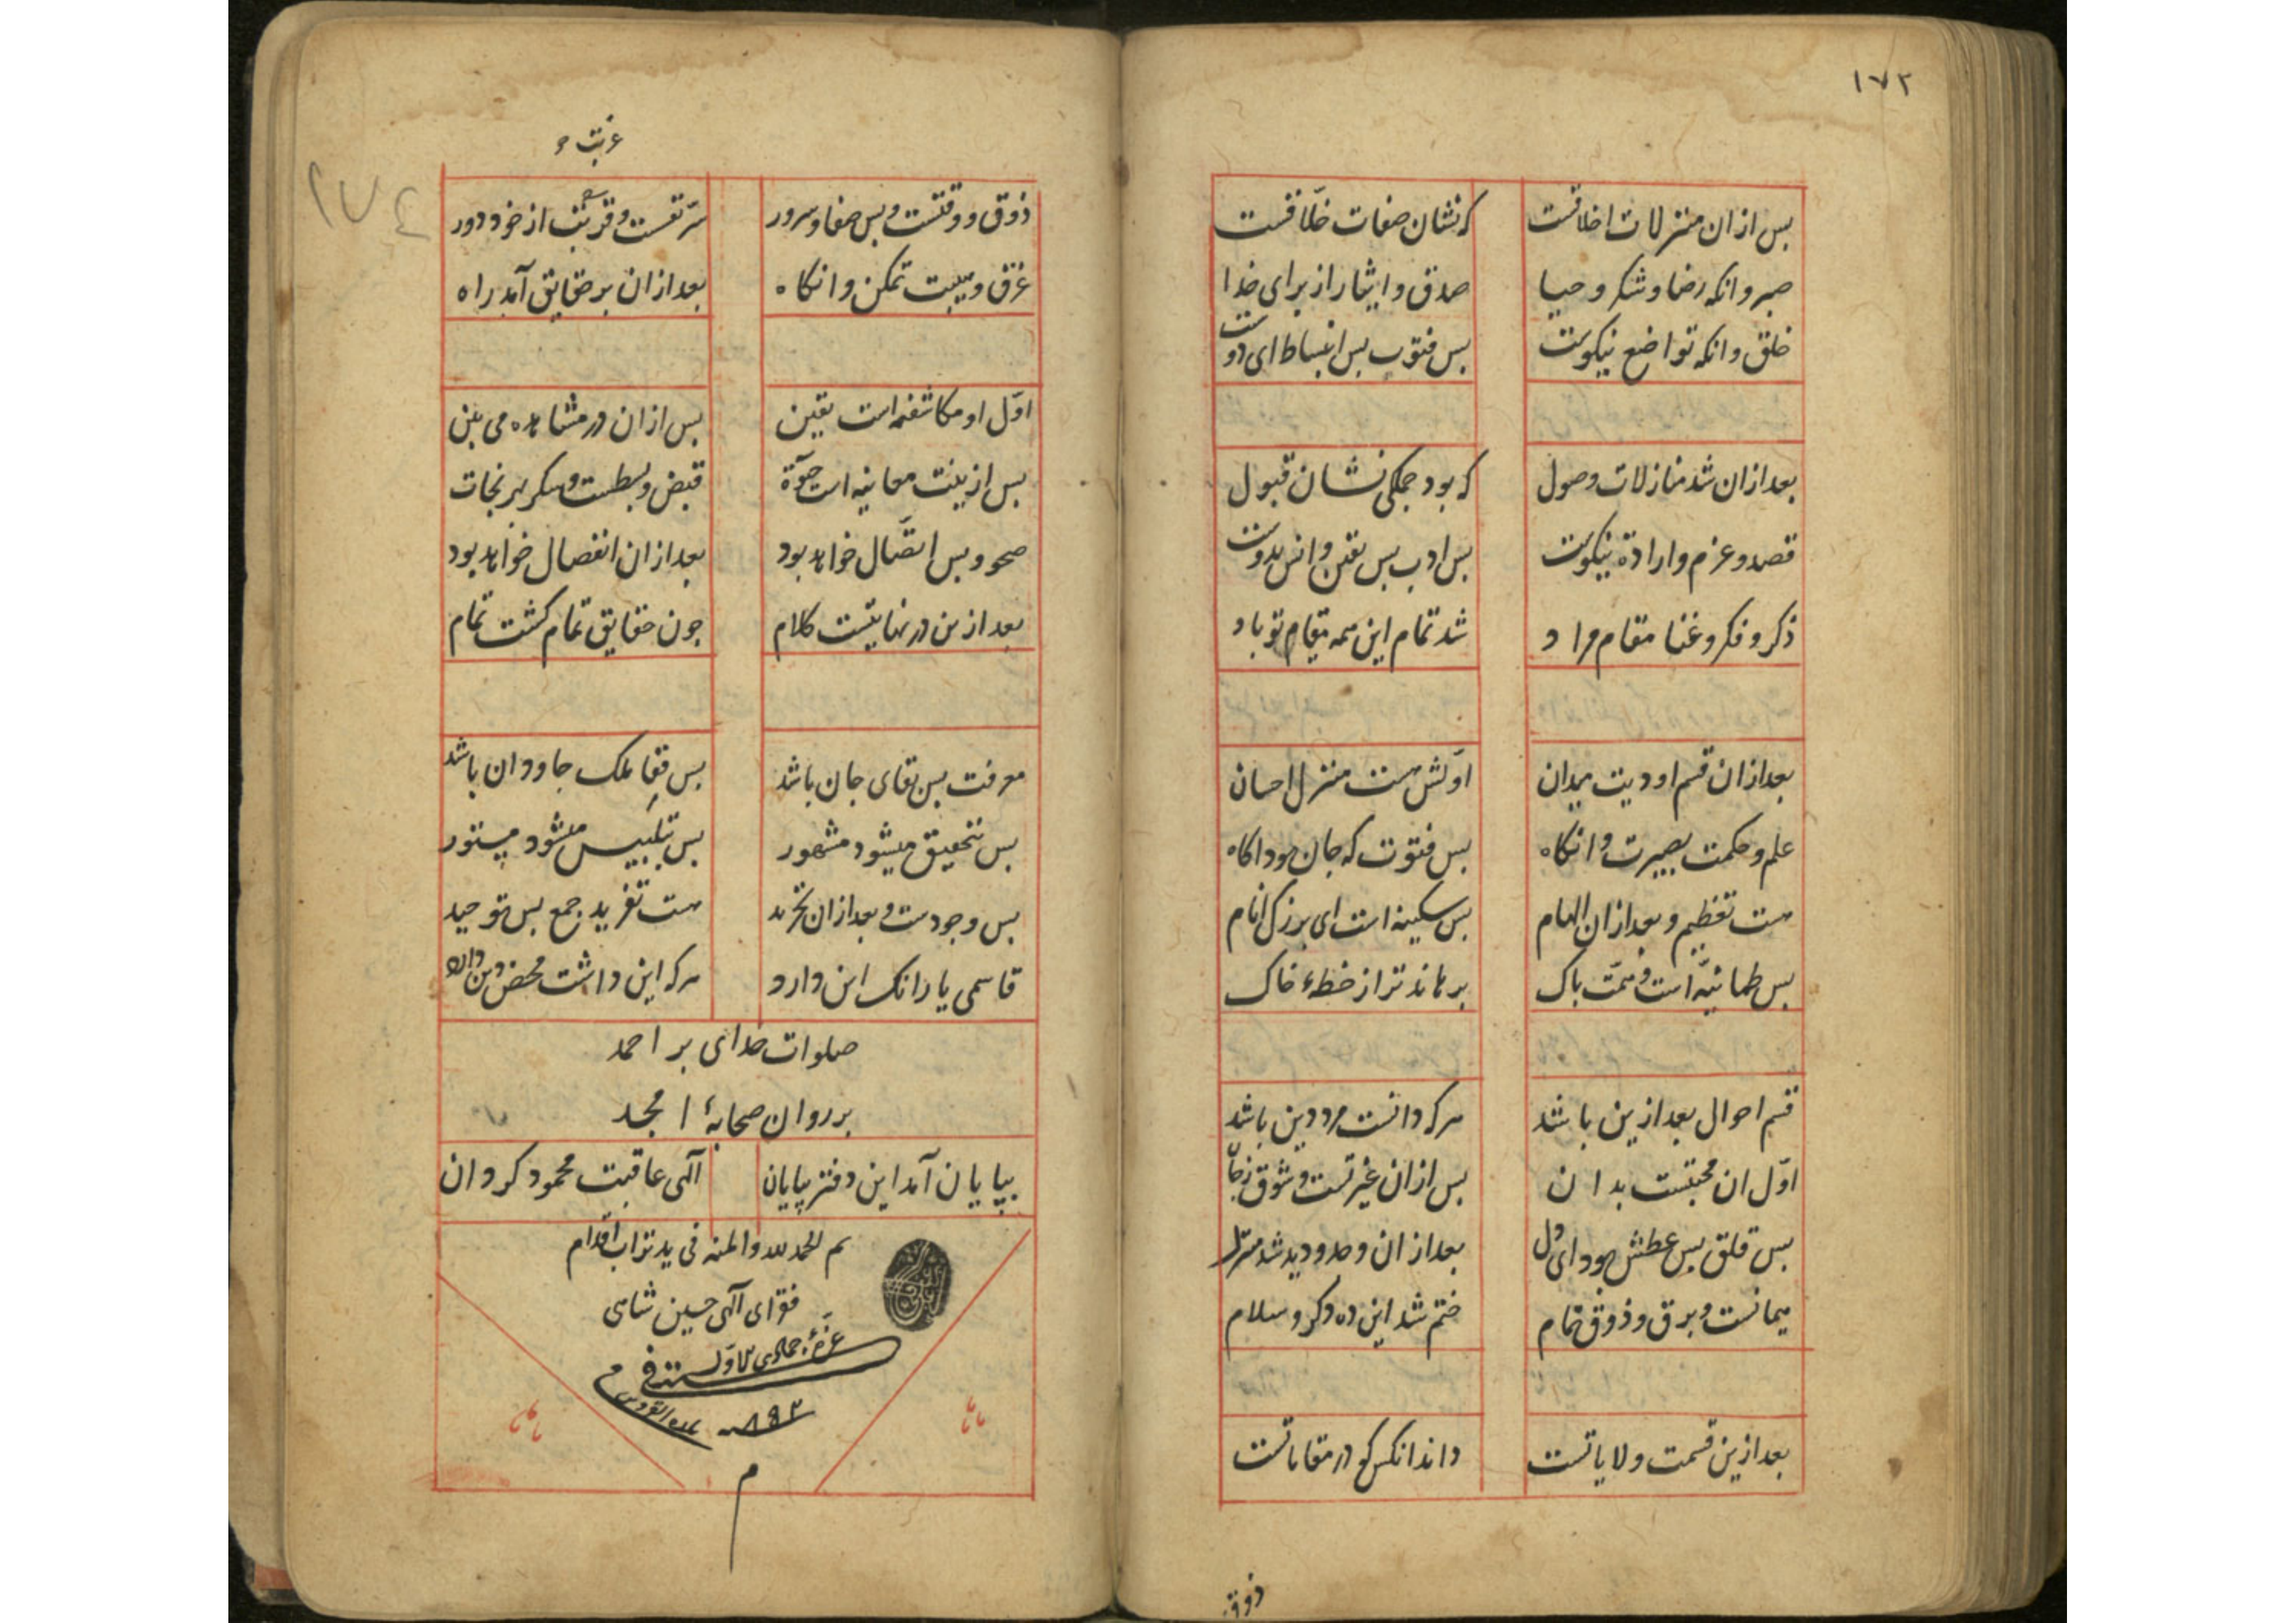 ۱۷۲
بس از ان منزلات اخلاقست که نشان صفات خلّاقست
صبر و انکه رضا و شکر و حیا صدق و ایثار از برای خدا
خلق و انکه تواضع نیکوست بس فتوت بس انبساط ای دوست
بعد از ان شد منازلات وصول که بود جملکی نشان قبول
قصد و عزم و ارادة نیکوست بس ادب بس یقین و انس بدوست
ذکر و فکر و غنا مقام مراد شد تمام این همه مقام تو باد
بعد از ان قسم اودیت میدان اوّلش هست منزل احسان
علم و حکمت بصیرت و انکاه بس فتوت که جان بود اکاه
هست تعظیم و بعد از ان الهام بس سکینه است ای بزرک انام
بس طمانیّه است و همّت باک برهاند ترا ز خطهٔ خاک
قسم احوال بعد ازین باشد هرکه دانست مرد دین باشد
اوّل ان محبتست بدان بس از ان غیرتست و شوق
بس قلق بس عطش بود ای دل بعد از ان وجد و دید شد منزل
هیمانست و برق و ذوق تمام ختم شد این ده دکر و سلام
بعد ازین قسمت ولایاتست داند انکس کو در مقاماتست
ذوق
غربت و
۱۷٤
ذوق و وقتست و بس صفا و سرور سرّ نفست و از خود دور
غرق و غیبت تمکن و انکاه بعد از ان بر حقایق آمد راه
اوّل او مکاشفه است یقین بس از ان در مشاهده می بین
بس ازینت معاینه است حیوة قبض و بسطست و سکر بر نجات
صحو و بس اتّصال خواهد بود بعد از ان انفصال خواهد بود
بعد ازین در نهایتست کلام جون حقایق تمام کشت تمام
معرفت بس بقای جان باشد بس ملک جاودان باشد
بس تحقیق میشود مشهور بس تلبیس میشود مستور
بس وجودست و بعد از ان تجرید هست تفرید جمع بس توحید
قاسمی یا رانک این دارد هرکه این داشت محض دین دارد
صلوات خدای بر احمد
بر روان صحابهٔ امجد
بپایان آمد این دفتر بپایان الهی عاقبت محمود کردان
تم الحمد لله و المنه فی ید تراب اقدام
فقرای الهی حسین شاهی
غرّهٔ جمادی الاوّل سنه فی
۸۹۳
م